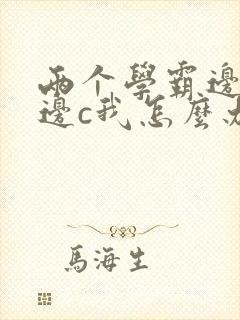 兩个學霸邊
邊c我怎麼办
馬海生